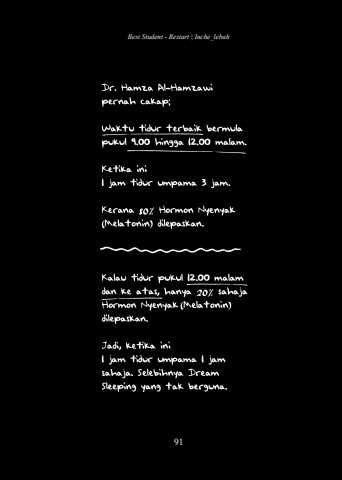 Best Student - Restart | Inche_lebah
Dr. Hamza Al-Hamzawi
pernah cakap;
Waktu tidur terbaik bermula
pukul 9.00 hingga 12.00 malam.
Ketika ini
1 jam tidur umpama 3 jam.
Kerana 80% Hormon Nyenyak
(Melatonin) dilepaskan.
Kalau tidur pukul 12.00 malam
dan ke atas, hanya 20% sahaja
Hormon Nyenyak (Melatonin)
dilepaskan.
Jadi, ketika ini
1 jam tidur umpama 1 jam
sahaja. Selebihnya Dream
Sleeping yang tak berguna.
91